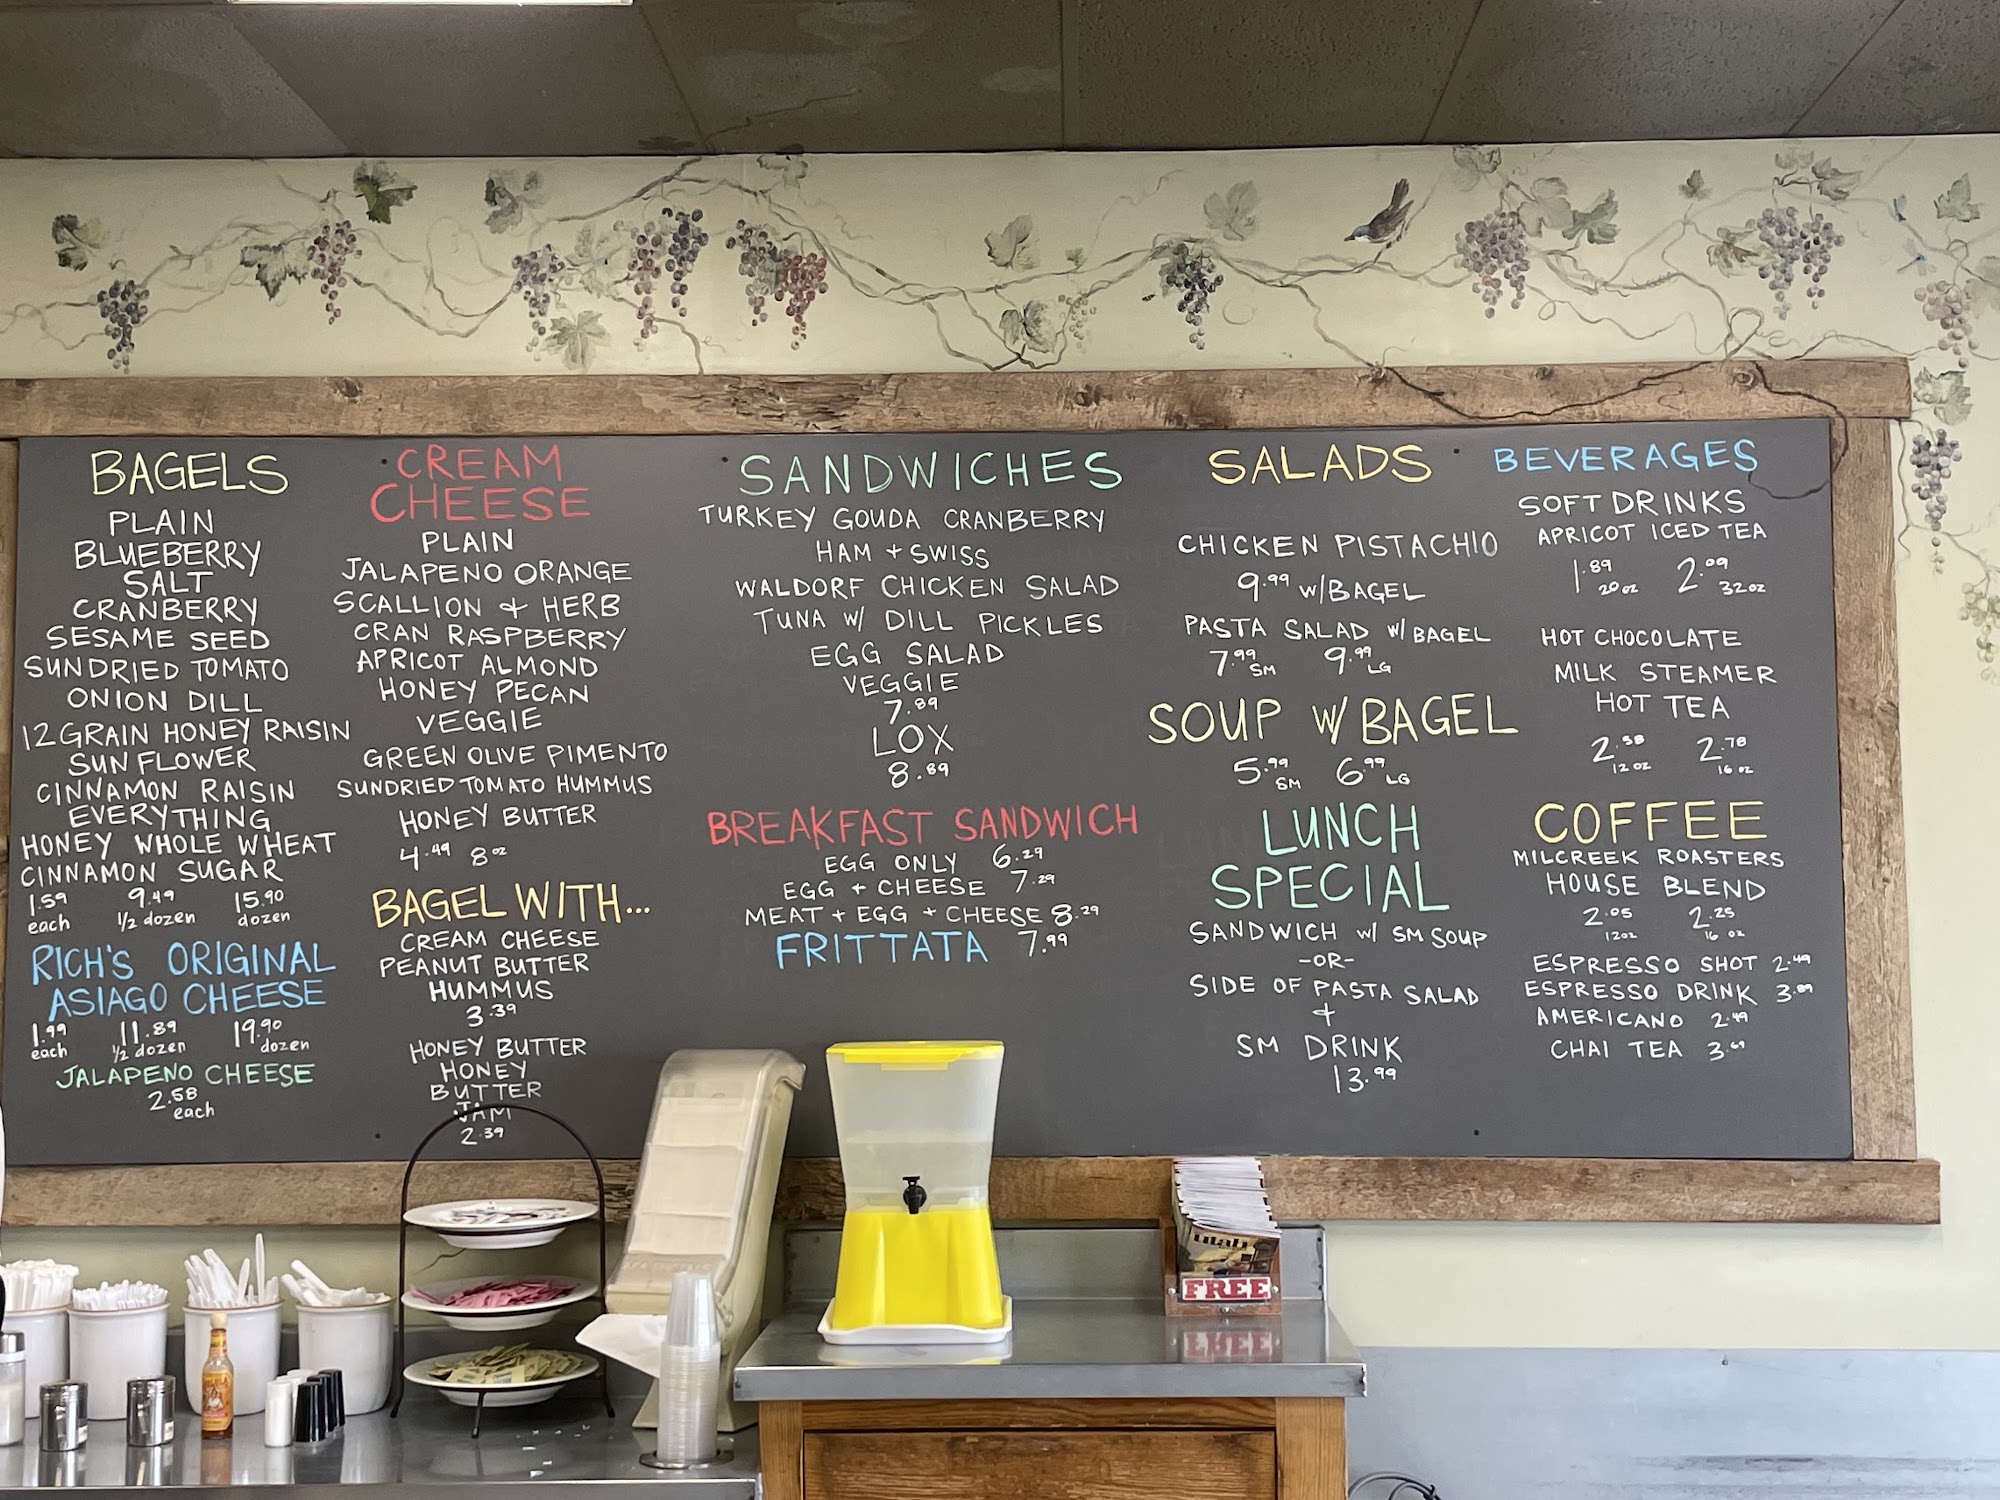 BAGELS
PLAIN
BLUEBERRY
SALT
CRANBERRY
SESAME SEED
SUNDRIED TOMATO
ONION DILL
12 GRAIN HONEY RAISIN
SUN FLOWER
CINNAMON RAISIN
EVERYTHING
HONEY WHOLE WHEAT
CINNAMON SUGAR
1.59 9.49 15.90
each 1/2 dozen dozen
RICH'S ORIGINAL
ASIAGO CHEESE
1.99 11.89 19.90
each 1/2 dozen dozen
JALAPENO CHEESE
2.58
each
CREAM
CHEESE
PLAIN
JALAPENO ORANGE
SCALLION + HERB
CRAN RASPBERRY
APRICOT ALMOND
HONEY PECAN
VEGGIE
GREEN OLIVE PIMENTO
SUNDRIED TOMATO HUMMUS
HONEY BUTTER
4.49 8 oz
BAGEL WITH...
CREAM CHEESE
PEANUT BUTTER
HUMMUS
3.39
HONEY BUTTER
HONEY
BUTTER
JAM
2.39
SANDWICHES
TURKEY GOUDA CRANBERRY
HAM + SWISS
WALDORF CHICKEN SALAD
TUNA W/ DILL PICKLES
EGG SALAD
VEGGIE
7.89
LOX
8.89
BREAKFAST SANDWICH
EGG ONLY 6.29
EGG + CHEESE 7.29
MEAT + EGG + CHEESE 8.29
FRITTATA 7.99
SALADS
CHICKEN PISTACHIO
9.99 W/BAGEL
PASTA SALAD W/ BAGEL
7.99 SM 9.99 LG
SOUP W/ BAGEL
5.99 SM 6.99 LG
LUNCH
SPECIAL
SANDWICH W/ SM SOUP
-OR-
SIDE OF PASTA SALAD
+
SM DRINK
13.99
BEVERAGES
SOFT DRINKS
APRICOT ICED TEA
1.89 20 oz 2.09 32 oz
HOT CHOCOLATE
MILK STEAMER
HOT TEA
2.58 12 oz 2.78 16 oz
COFFEE
MILCREEK ROASTERS
HOUSE BLEND
2.05 12 oz 2.25 16 oz
ESPRESSO SHOT 2.49
ESPRESSO DRINK 3.89
AMERICANO 2.49
CHAI TEA 3.69
utah
FREE